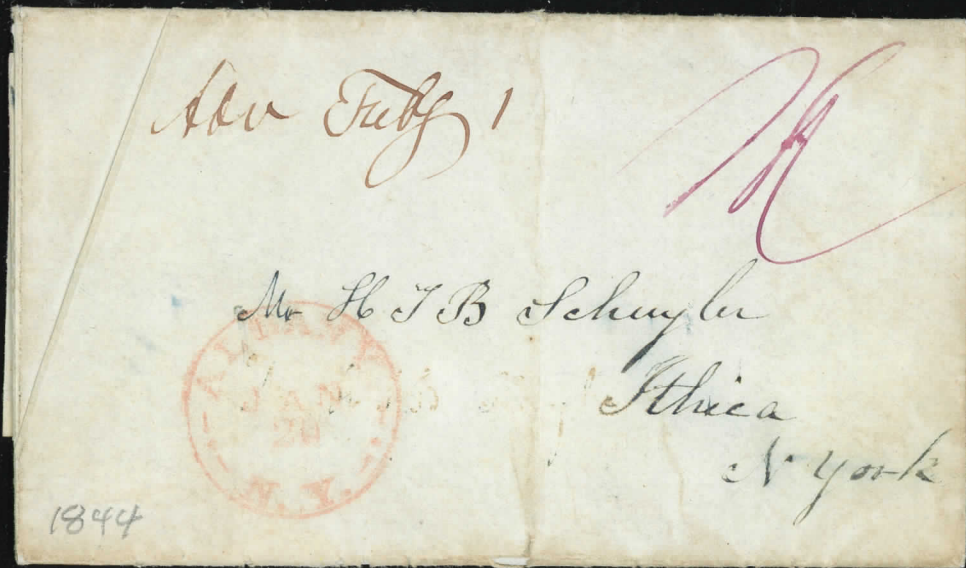 Adv Feby 1
Mr H T B Schuyler
Ithica
N York
ALBANY
JAN
N.Y.
1844